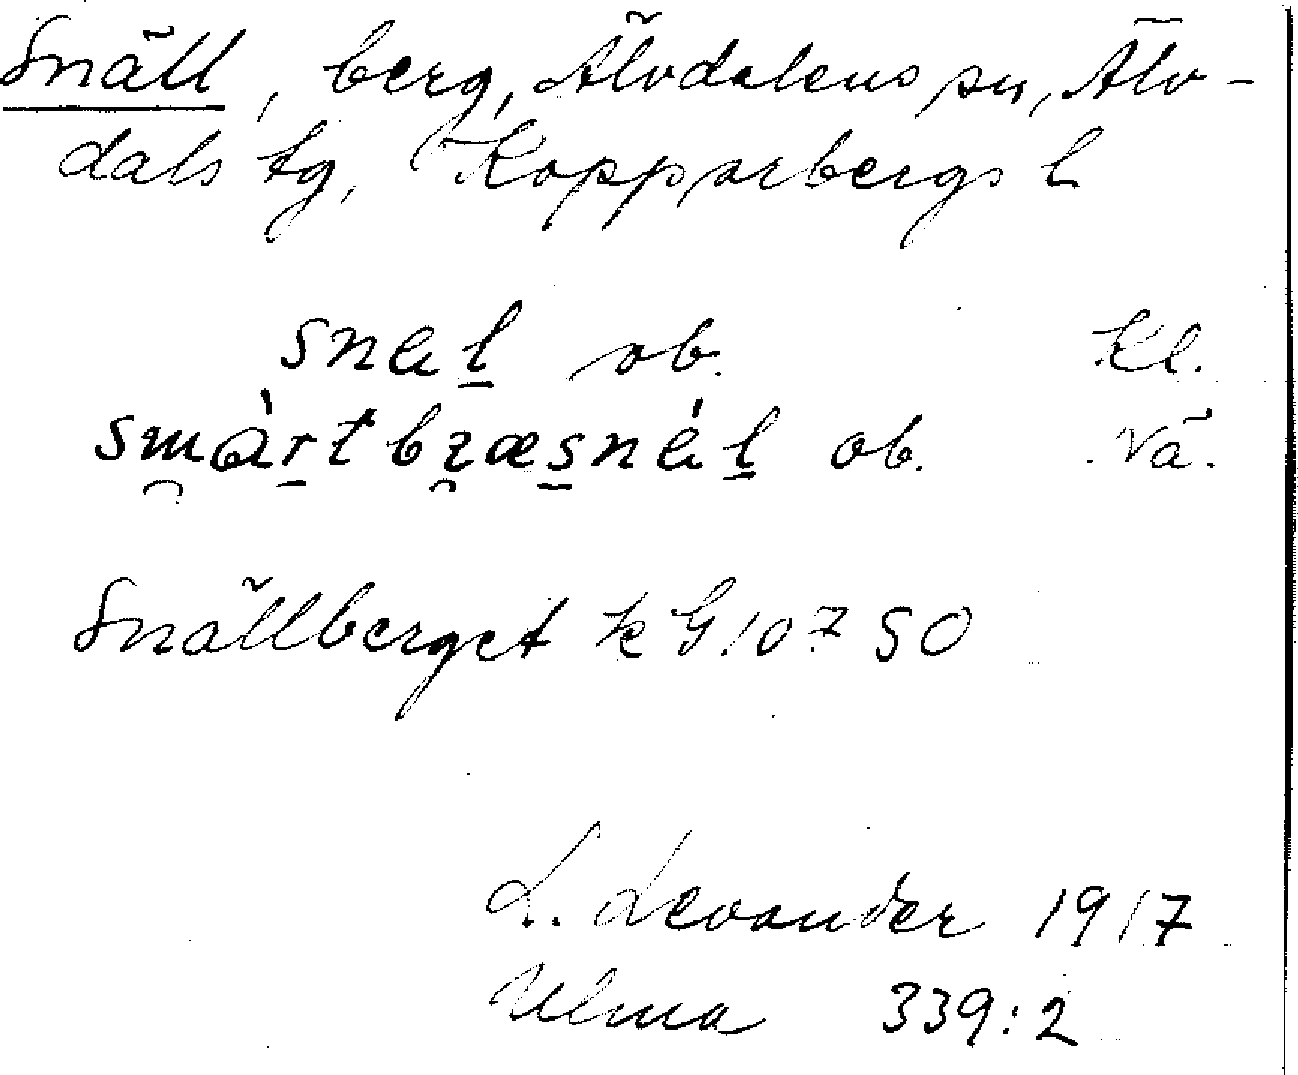 Snäll, berg, Älvdalens sn, Älv-
dals tg, Kopparbergs l
ob. Kl.
ob. Vå.
Snällberget k G 10750
L. Levander 1917
Ulma 339:2